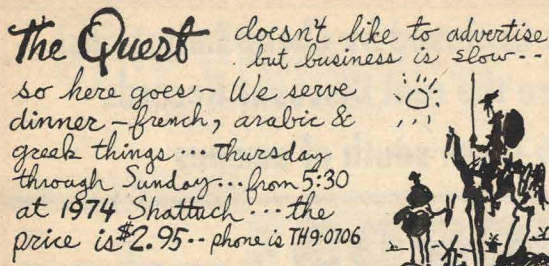 The Quest doesn't like to advertise
but business is slow--
so here goes - We serve
dinner - french, arabic &
greek things ... thursday
through Sunday ... from 5:30
at 1974 Shattuch ... the
price is $2.95 -- phone is TH9-0706